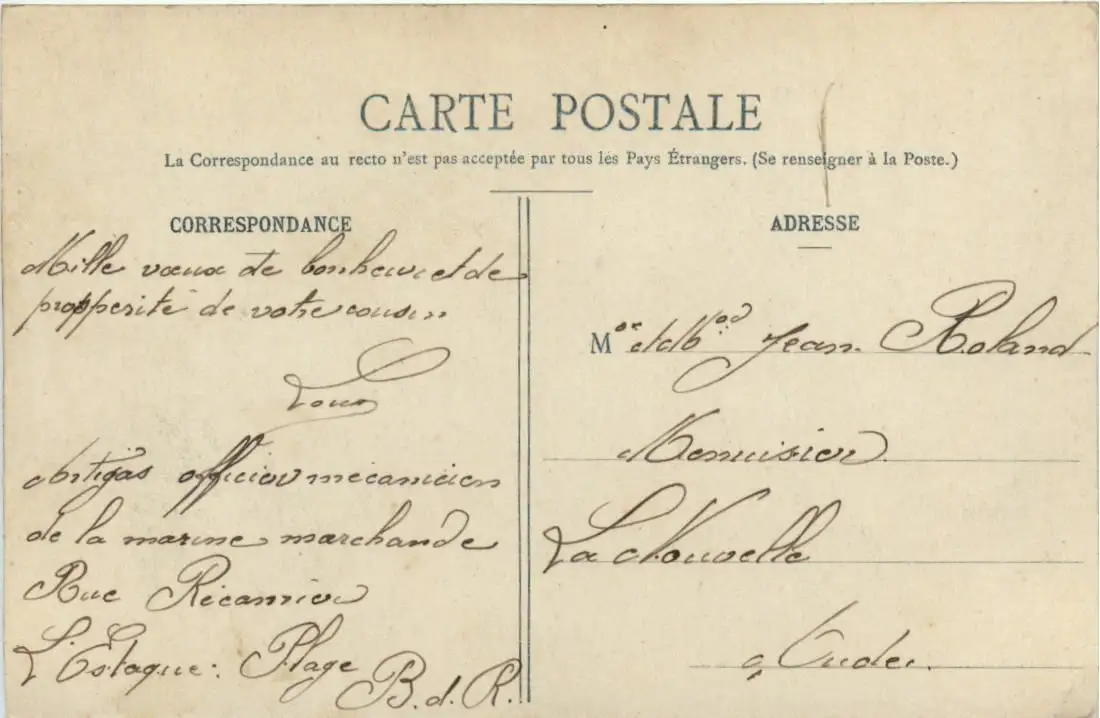 CARTE POSTALE
La Correspondance au recto n'est pas acceptée par tous les Pays Étrangers. (Se renseigner à la Poste.)
CORRESPONDANCE
Mille vœux de bonheur et de
propperité de votre cousin
Louis
Artigas officier mécanicien
de la marine marchande
Rue Récamier
L'Estaque: Plage
B.d.R.
ADRESSE
M et Jean Roland
Menuisier
La Nouvelle
Aude